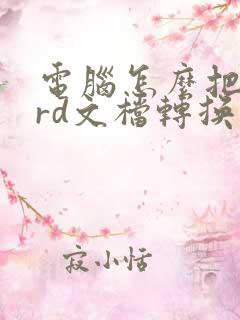 電腦怎麼把
rd文檔轉換
寂小恬